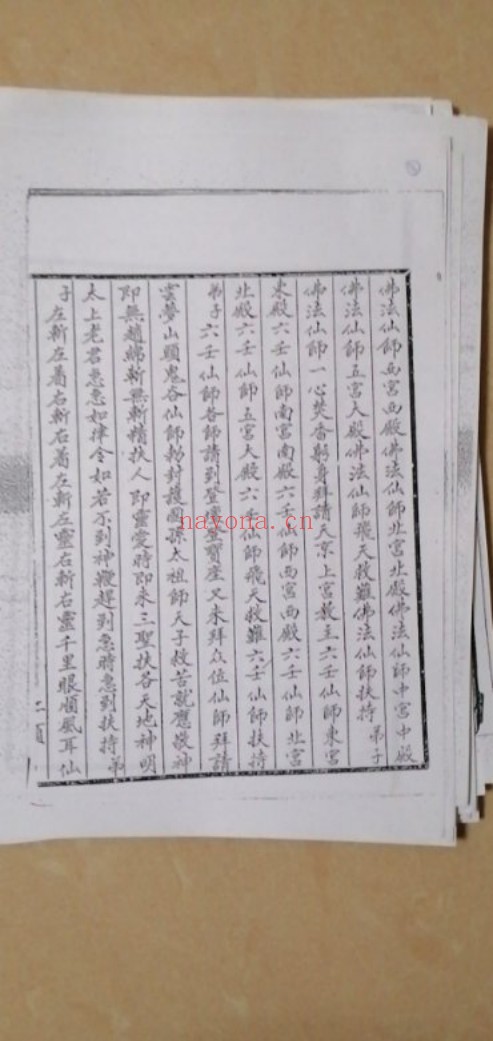 佛法仙師西宮西殿佛法仙師北宮北殿佛法仙師中宮中殿
佛法仙師五宮大殿佛法仙師飛天救難佛法仙師扶持 弟子
佛法仙師一心焚香躬身拜請天京上宮教主六壬仙師東宮
東殿六壬仙師南宮南殿六壬仙師西宮西殿六壬仙師北宮
北殿六壬仙師五宮大殿六壬仙師飛天救難六壬仙師扶持
弟子六壬仙師各師請到登壇登寶座又來拜众位仙師拜請
雲夢山頭鬼谷仙師勅封護國孫太祖師天子救苦就應救神
即無趙綿斬無斬精扶人即靈愛時即来三聖扶各天地神明
太上老君急急如律令如若不到神鞭趕到急時急到扶持弟
子左斬左着右斬右着左斬左靈右斬右靈千里眼順風耳仙
nayona.cn